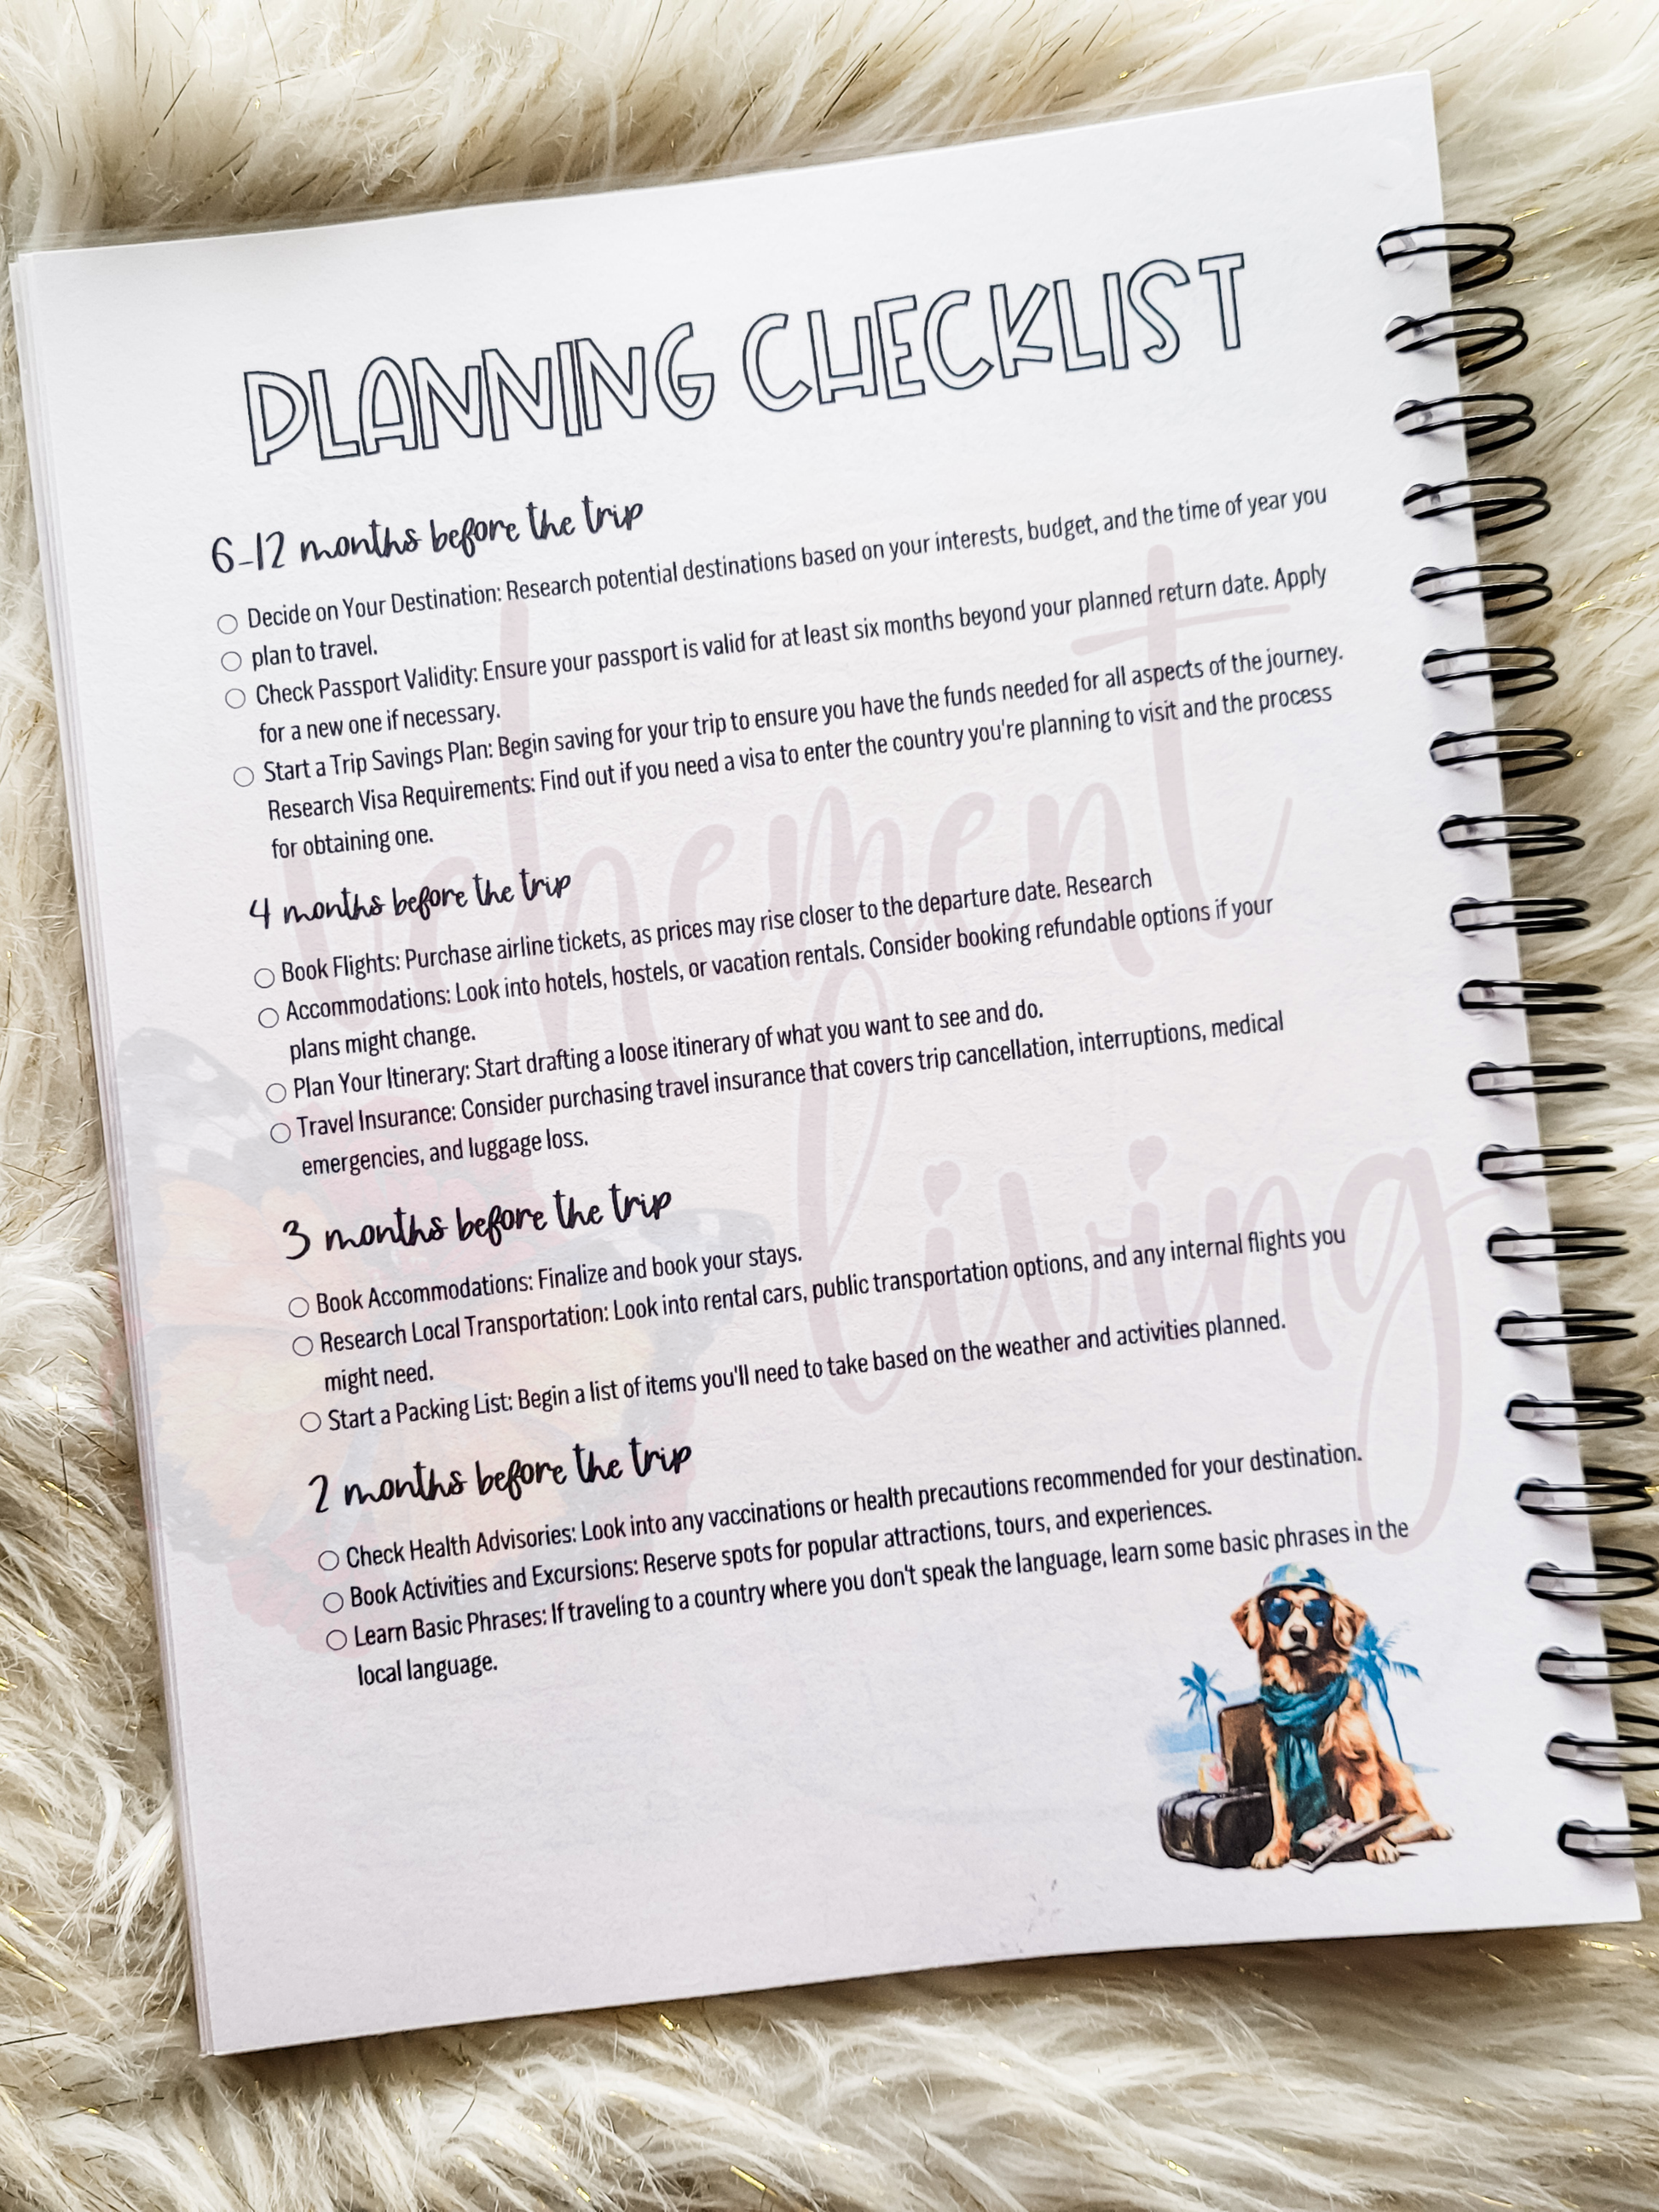 PLANNING CHECKLIST
6-12 months before the trip
Decide on Your Destination: Research potential destinations based on your interests, budget, and the time of year you
plan to travel.
Check Passport Validity: Ensure your passport is valid for at least six months beyond your planned return date. Apply
for a new one if necessary.
Start a Trip Savings Plan: Begin saving for your trip to ensure you have the funds needed for all aspects of the journey.
Research Visa Requirements: Find out if you need a visa to enter the country you're planning to visit and the process
for obtaining one.
4 months before the trip
Book Flights: Purchase airline tickets, as prices may rise closer to the departure date. Research
Accommodations: Look into hotels, hostels, or vacation rentals. Consider booking refundable options if your
plans might change.
Plan Your Itinerary: Start drafting a loose itinerary of what you want to see and do.
Travel Insurance: Consider purchasing travel insurance that covers trip cancellation, interruptions, medical
emergencies, and luggage loss.
3 months before the trip
Book Accommodations: Finalize and book your stays.
Research Local Transportation: Look into rental cars, public transportation options, and any internal flights you
might need.
Start a Packing List: Begin a list of items you'll need to take based on the weather and activities planned.
2 months before the trip
Check Health Advisories: Look into any vaccinations or health precautions recommended for your destination.
Book Activities and Excursions: Reserve spots for popular attractions, tours, and experiences.
Learn Basic Phrases: If traveling to a country where you don't speak the language, learn some basic phrases in the
local language.
living